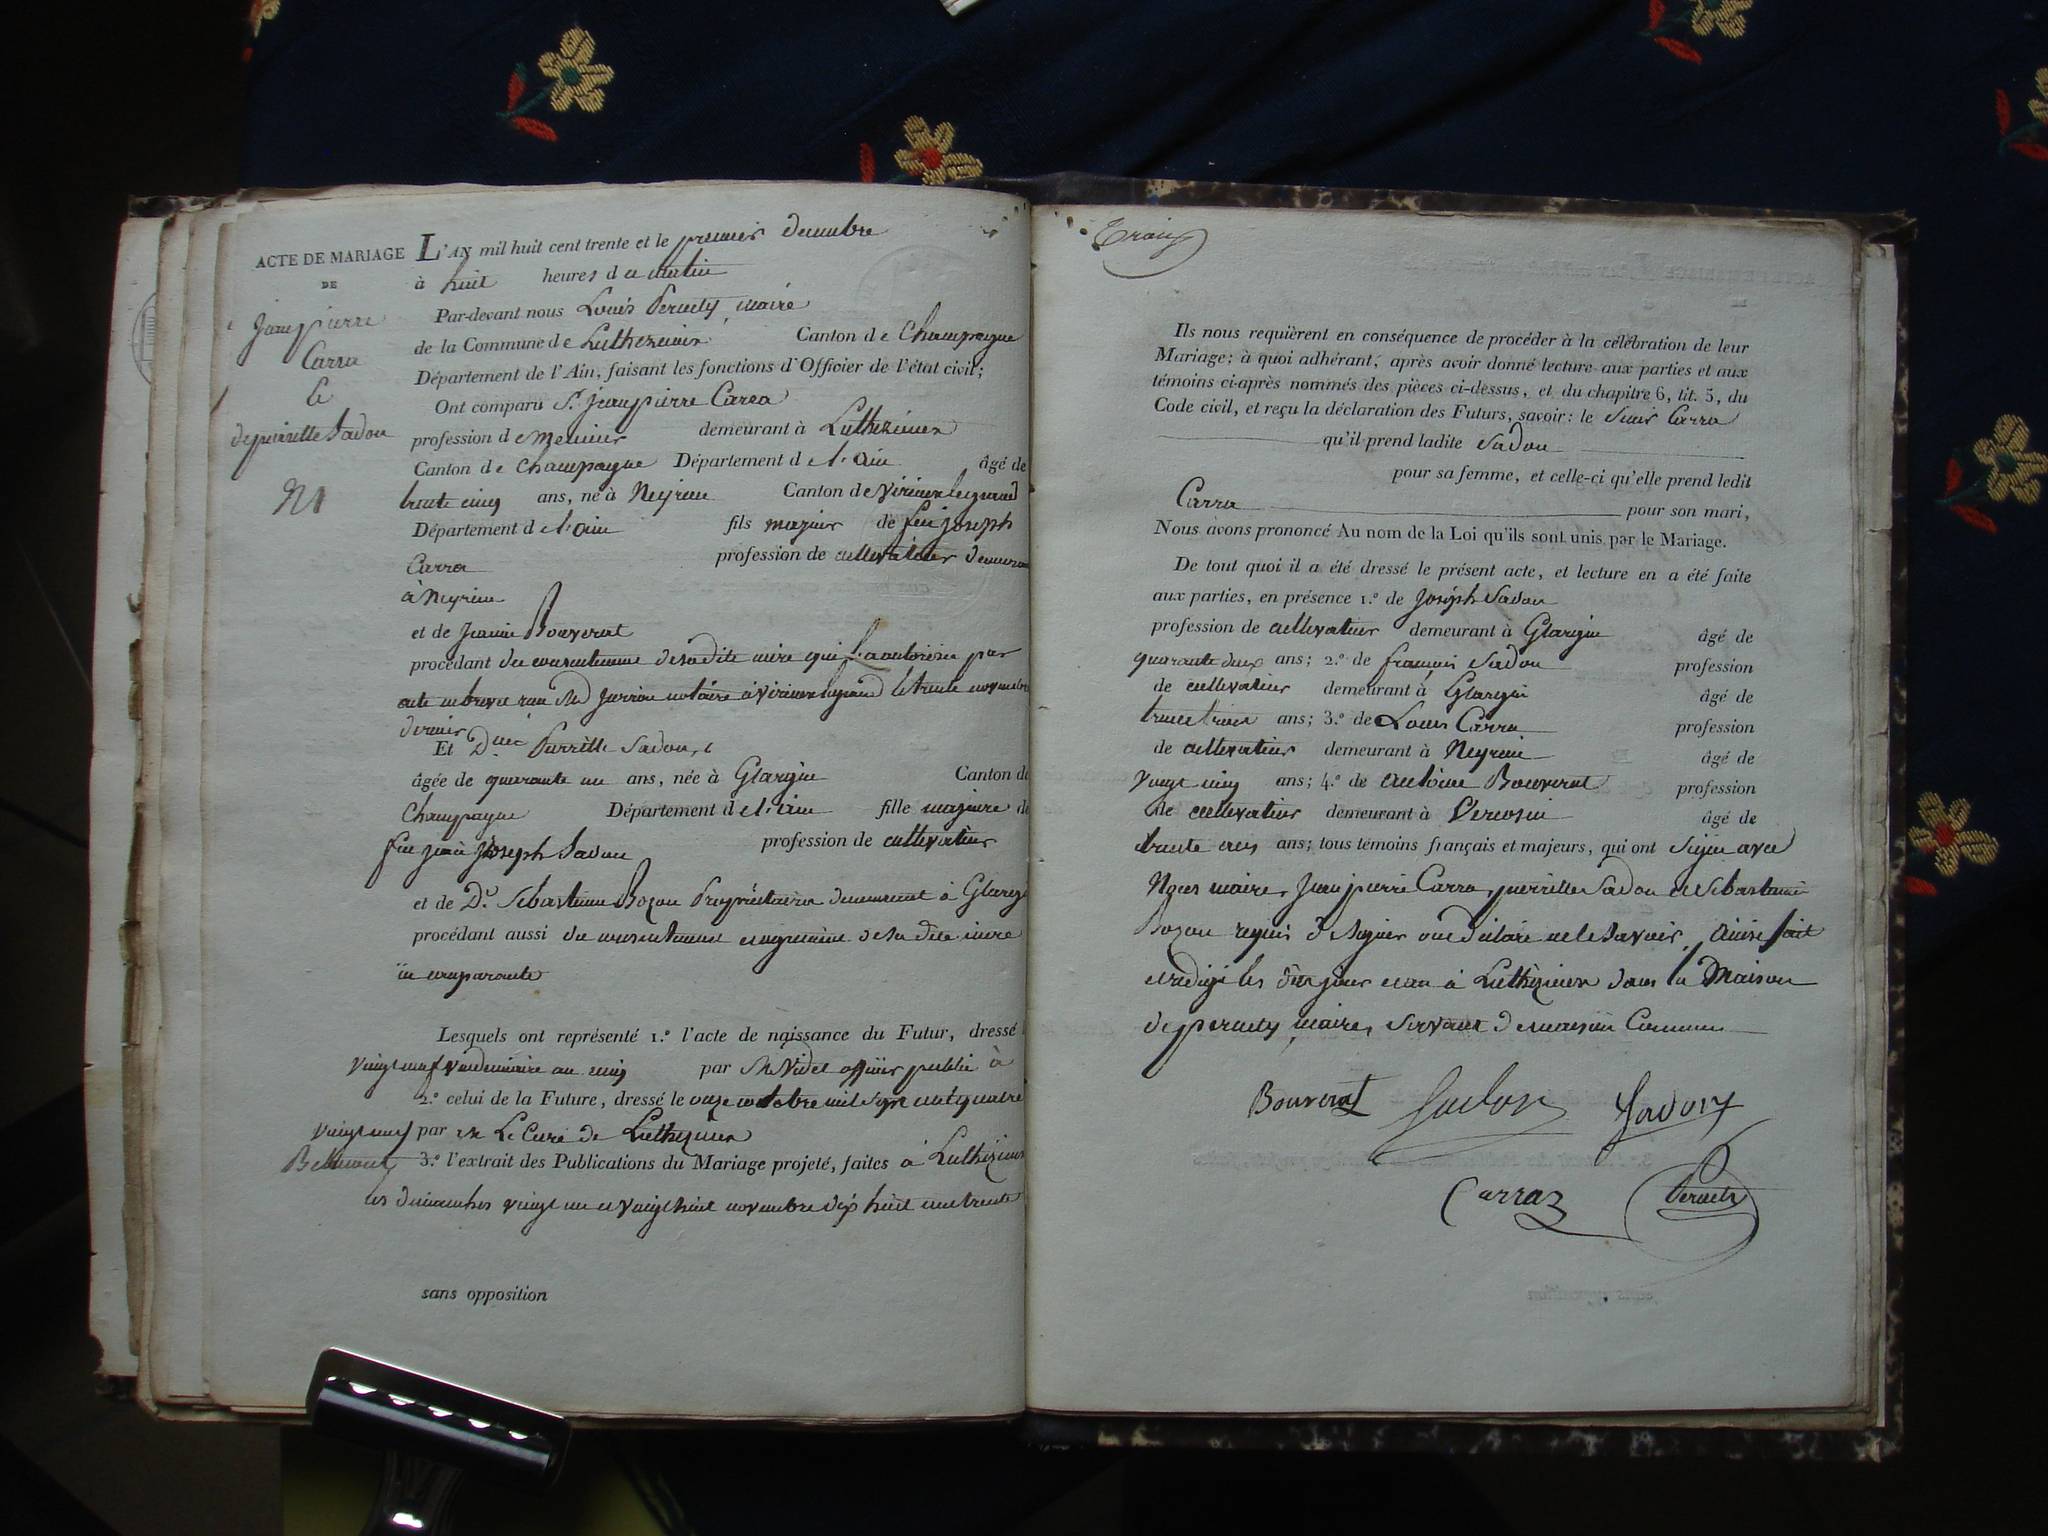 ACTE DE MARIAGE
DE
Jeanpierre
Carra
&
depierrette Sadou
N 1
L'AN mil huit cent trente et le premier decembre
à huit heures du matin
Par-devant nous Louis Peruety, maire
de la Commune de Luthezieux Canton de Champagne
Département de l'Ain, faisant les fonctions d'Officier de l'état civil;
Ont comparu Sr. Jeanpierre Carra
profession de Meunier demeurant à Luthezieux
Canton de Champagne Département de l'ain âgé de
trente cinq ans, né à Neyrieu Canton de Virieu legrand
Département de l'ain fils majeur de feu joseph
Carra profession de cultivateur demeurant
à Neyrieu
et de Jeanne Bouverat
procédant du consentement desadite mère qui l'aautorisé par
acte enbrevet reçu Me Jurron notaire àVirieu legrand letrente novembre
dernier
Et Dlle Pierrette Sadou
âgée de quarante un ans, née à Glargin Canton de
Champagne Département de l'ain fille majeure de
feu jean Joseph Sadou profession de cultivateur
et de De. Sébastienne Bozon Propriétaire demeurant à Glargin
procédant aussi du consentement de sadite mère
ici comparante
Lesquels ont représenté 1.º l'acte de naissance du Futur, dressé
vingt neuf vendemiaire an cinq par Me Videt officier public à
2.º celui de la Future, dressé le onze octobre mil sept centquatre
vingt neuf par Le Curé de Luthezieux
Belmont 3.º l'extrait des Publications du Mariage projeté, faites à Luthezieux
les dimanches vingt un et vingthuit novembre dix huit centtrente
sans opposition
Trois
Ils nous requièrent en conséquence de procéder à la célébration de leur
Mariage; à quoi adhérant, après avoir donné lecture aux parties et aux
témoins ci-après nommés des pièces ci-dessus, et du chapitre 6, tit. 5, du
Code civil, et reçu la déclaration des Futurs, savoir: le Sieur Carra
qu'il prend ladite Sadou
pour sa femme, et celle-ci qu'elle prend ledit
Carra pour son mari,
Nous avons prononcé Au nom de la Loi qu'ils sont unis par le Mariage.
De tout quoi il a été dressé le présent acte, et lecture en a été faite
aux parties, en présence 1.º de Joseph Sadou
profession de cultivateur demeurant à Glargin âgé de
quarante deux ans; 2.º de françois Sadou profession
de cultivateur demeurant à Glargin âgé de
trente trois ans; 3.º de Louis Carra profession
de cultivateur demeurant à Neyrieu âgé de
vingt cinq ans; 4.º de Antoine Bouverat profession
de cultivateur demeurant à Vercosin âgé de
trente trois ans; tous témoins français et majeurs, qui ont signé avec
Nous maire, Jeanpierre Carra, pierrette Sadou et Sébastienne
Bozon requis de signer ont déclaré nele Savoir. Ainsi fait
et rédigé les dits jour et an à Luthezieux dans la Maison
de peruety, maire, servant demaison Commune
Bouverat Sadou Sadoux
Carraz Peruety